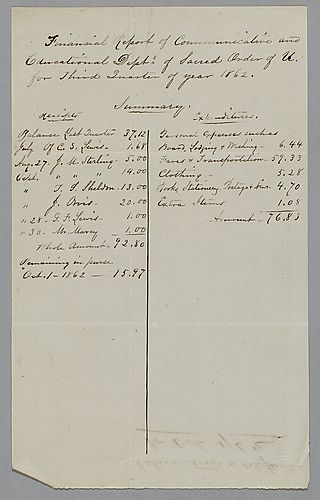 Financial Report of Communicative and
Educational Dept's of Sacred Order of U.
for Third Quarter of year 1862.
Summary.
Receipts
Balance Last Quarter 37,12
July Of C. S. Lewis - 1.68
Aug. 27. J. M. Sterling - 5.00
Oct. " " 14.00
" T. S. Sheldon 13.00
" J. Orvis - 20.00
" 28 - F. F. Lewis - 1.00
" 30 - M. Marcy - 1.00
Whole Amount - 92.80
Remaining in purse
Oct. 1 - 1862 - 15.97
Expenditures.
Personal Expenses such as
Board, Lodging & Washing - 6.44
Fares & Transportation - 59.33
Clothing - 5.28
Books, Stationery, - 4.70
Extra Items 1.08
Amount - 76.83